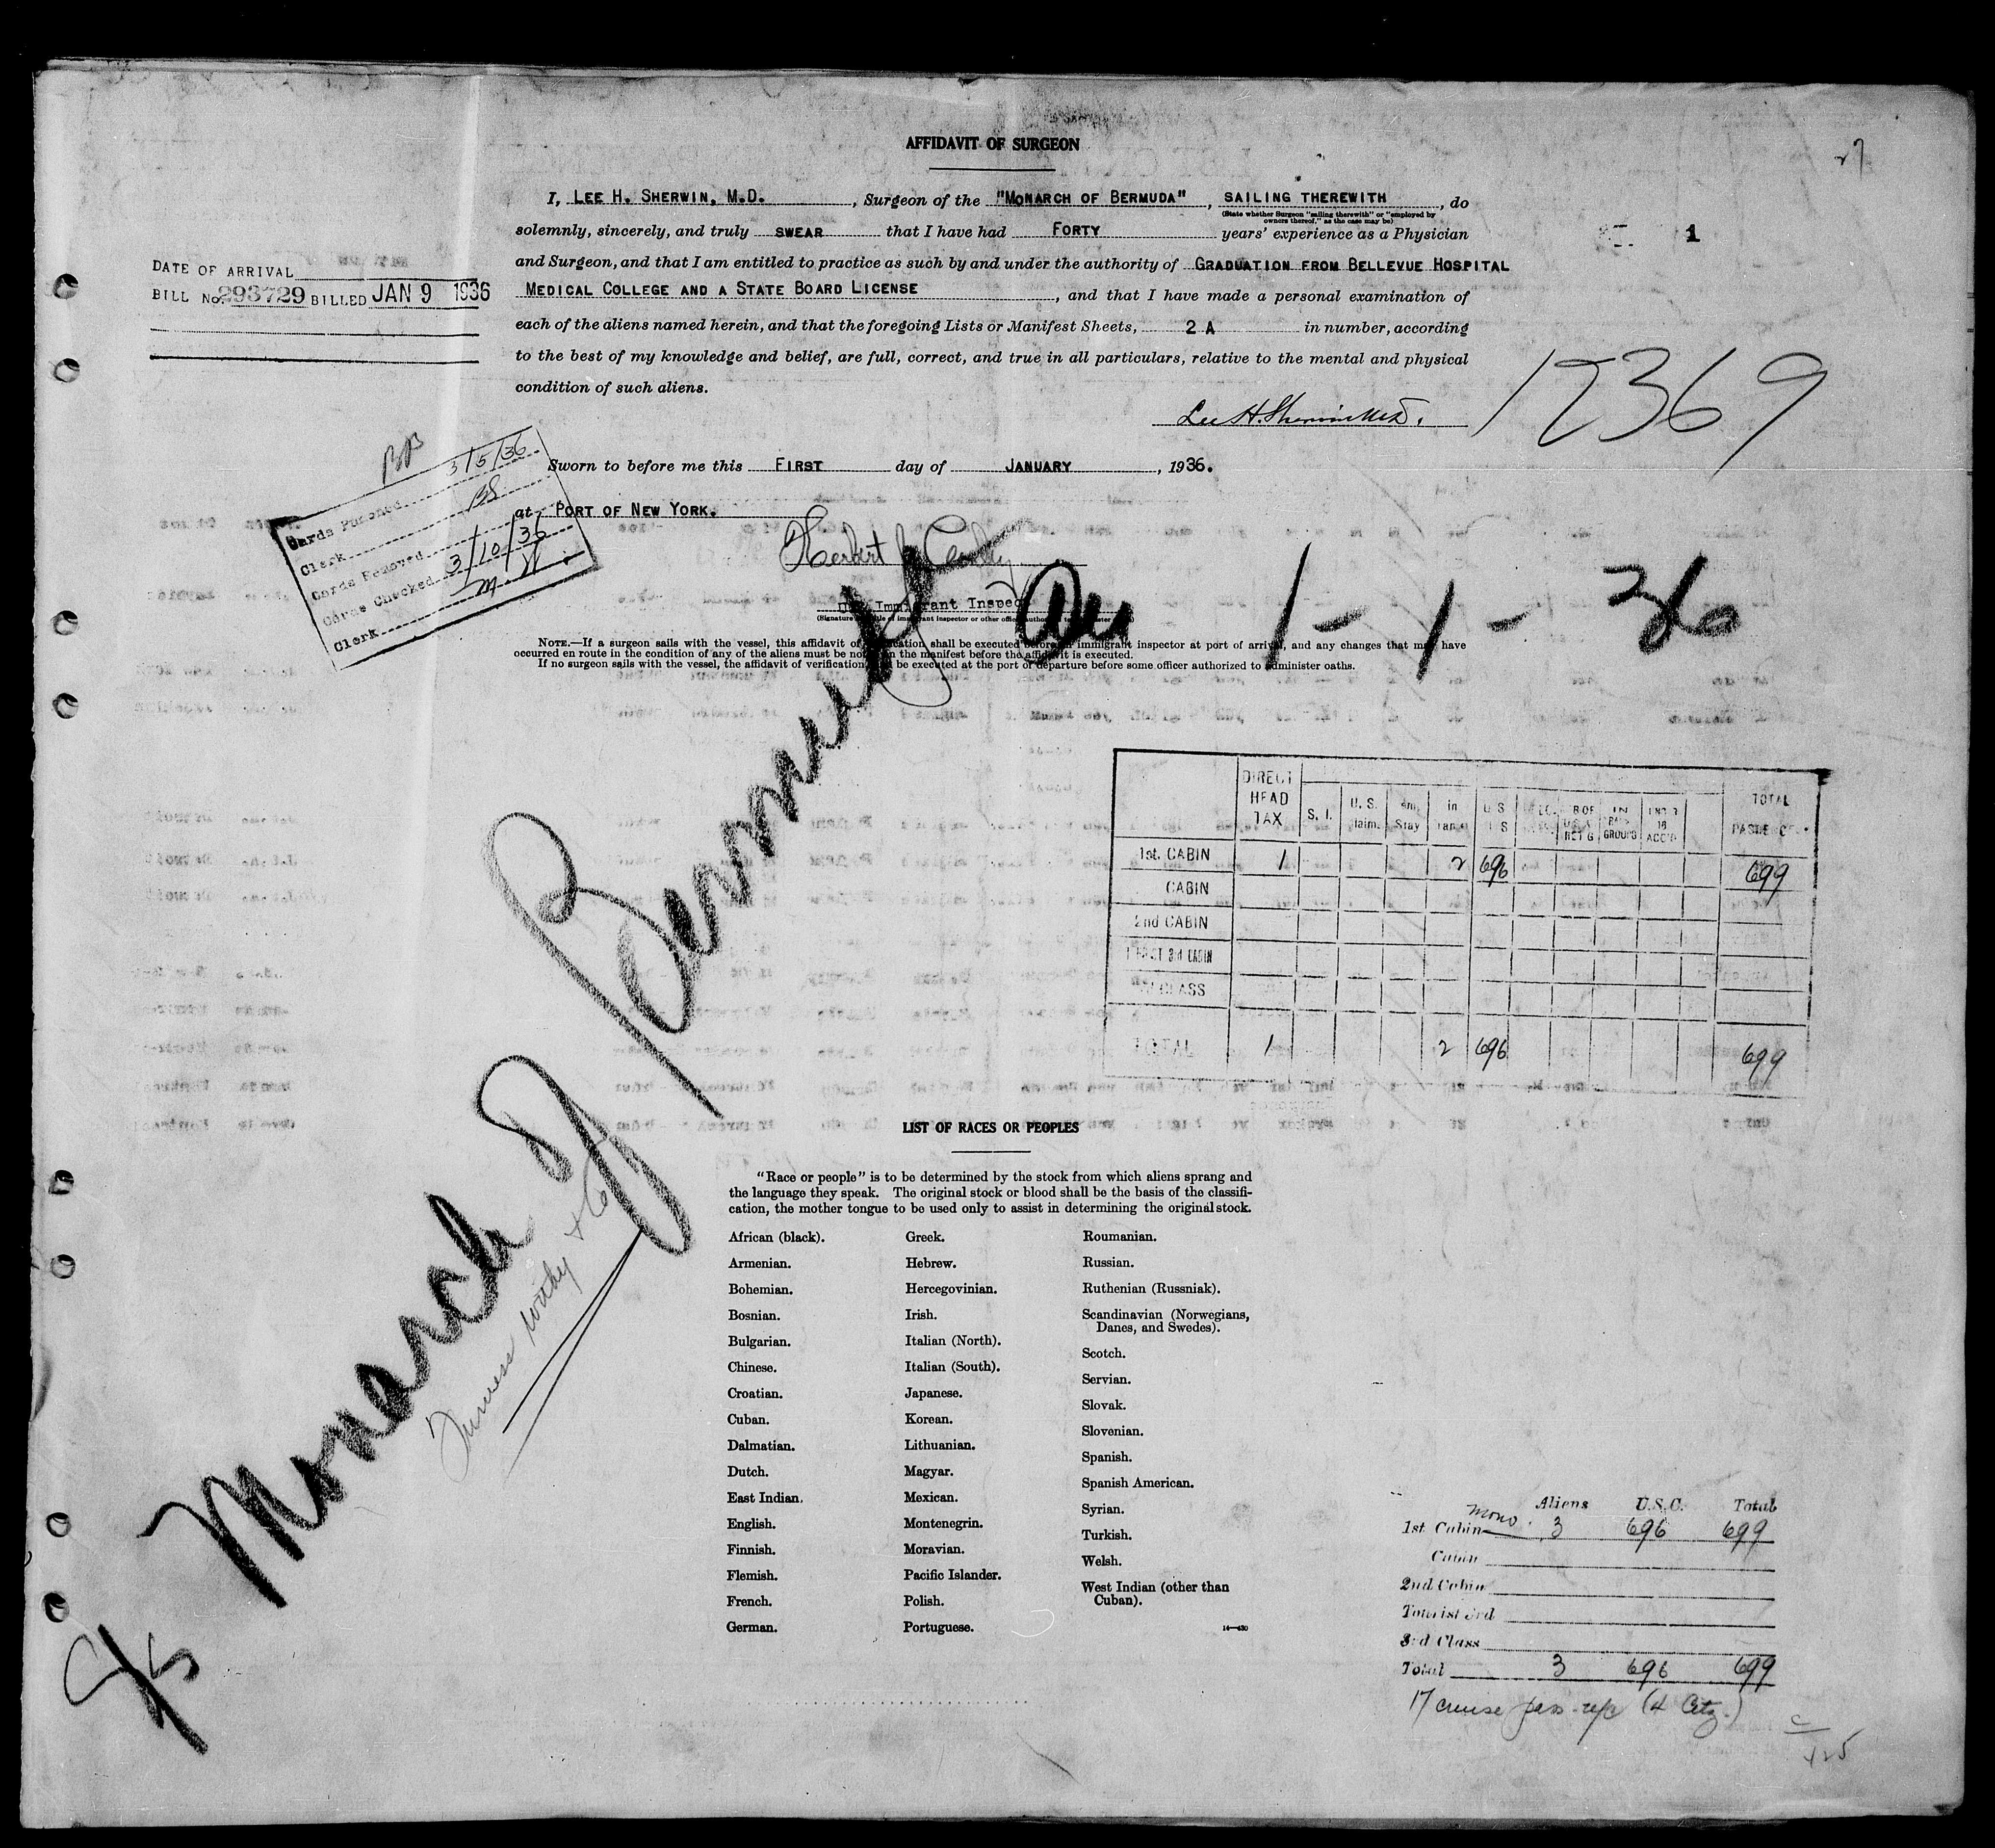 27
AFFIDAVIT OF SURGEON
I, LEE H. SHERWIN, M.D. , Surgeon of the "MONARCH OF BERMUDA" , SAILING THEREWITH , do
(State whether Surgeon "sailing therewith" or "employed by
owners thereof," as the case may be)
solemnly, sincerely, and truly SWEAR that I have had FORTY years' experience as a Physician
1
and Surgeon, and that I am entitled to practice as such by and under the authority of GRADUATION FROM BELLEVUE HOSPITAL
MEDICAL COLLEGE AND A STATE BOARD LICENSE , and that I have made a personal examination of
each of the aliens named herein, and that the foregoing Lists or Manifest Sheets, 2 A in number, according
to the best of my knowledge and belief, are full, correct, and true in all particulars, relative to the mental and physical
condition of such aliens.
DATE OF ARRIVAL
BILL No. 293729 BILLED JAN 9 1936
Lee H. Sherwin M.D.
12369
Sworn to before me this FIRST day of JANUARY , 1936.
at PORT OF NEW YORK.
3/5/36
Cards Punched
Clerk BS
Cards Removed
Cards Checked 3/10/36
Clerk M.W.
Herbert
U.S. Immigrant Inspec
1 - 1 - 36
NOTE.—If a surgeon sails with the vessel, this affidavit of cation shall be executed before an immigrant inspector at port of arrival, and any changes that may have
occurred en route in the condition of any of the aliens must be not on the manifest before the affidavit is executed.
If no surgeon sails with the vessel, the affidavit of verification be executed at the port of departure before some officer authorized to administer oaths.
Monarch of Bermuda
Furness Withy & Co
DIRECT HEAD TAX S. I. U. S. laim. Stay in U S GROUPS TOTAL
1st. CABIN 1 2 696 699
CABIN
2nd CABIN
3rd CABIN
CLASS
TOTAL 1 2 696 699
LIST OF RACES OR PEOPLES
"Race or people" is to be determined by the stock from which aliens sprang and
the language they speak. The original stock or blood shall be the basis of the classifi-
cation, the mother tongue to be used only to assist in determining the original stock.
African (black).
Armenian.
Bohemian.
Bosnian.
Bulgarian.
Chinese.
Croatian.
Cuban.
Dalmatian.
Dutch.
East Indian.
English.
Finnish.
Flemish.
French.
German.
Greek.
Hebrew.
Hercegovinian.
Irish.
Italian (North).
Italian (South).
Japanese.
Korean.
Lithuanian.
Magyar.
Mexican.
Montenegrin.
Moravian.
Pacific Islander.
Polish.
Portuguese.
Roumanian.
Russian.
Ruthenian (Russniak).
Scandinavian (Norwegians,
Danes, and Swedes).
Scotch.
Servian.
Slovak.
Slovenian.
Spanish.
Spanish American.
Syrian.
Turkish.
Welsh.
West Indian (other than
Cuban).
14—430
Aliens U.S.C. Total
mono.
1st. Cabin 3 696 699
Cabin
2nd Cabin
Tourist 3rd
3rd Class
Total 3 696 699
17 cruise pass.